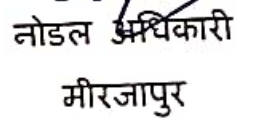 नोडल अधिकारी
मीरजापुर